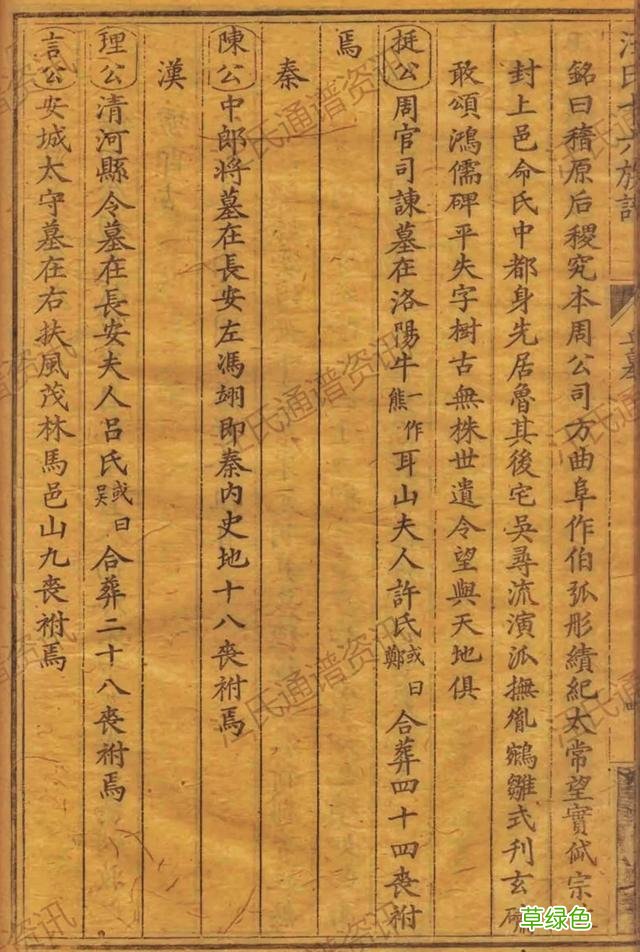 汪氏十六族譜
銘曰稽原后稷究本周公司方曲阜作伯弧形績紀太常望實俶宗
封上邑命氏中都身先居魯其後宅吳尋流演派撫胤鵷雛式刊玄
敢頌鴻儒碑平失字樹古無株世遺令望與天地俱
挺公 周官司諫墓在洛陽牛一作熊耳山夫人許氏或曰鄭合葬四十四喪祔
焉
秦
陳公 中郎將墓在長安左馮翊即秦內史地十八喪祔焉
漢
理公 清河縣令墓在長安夫人呂氏或曰吳合葬二十八喪祔焉
言公 安城太守墓在右扶風茂林馬邑山九喪祔焉
汪氏通谱资讯
草绿色